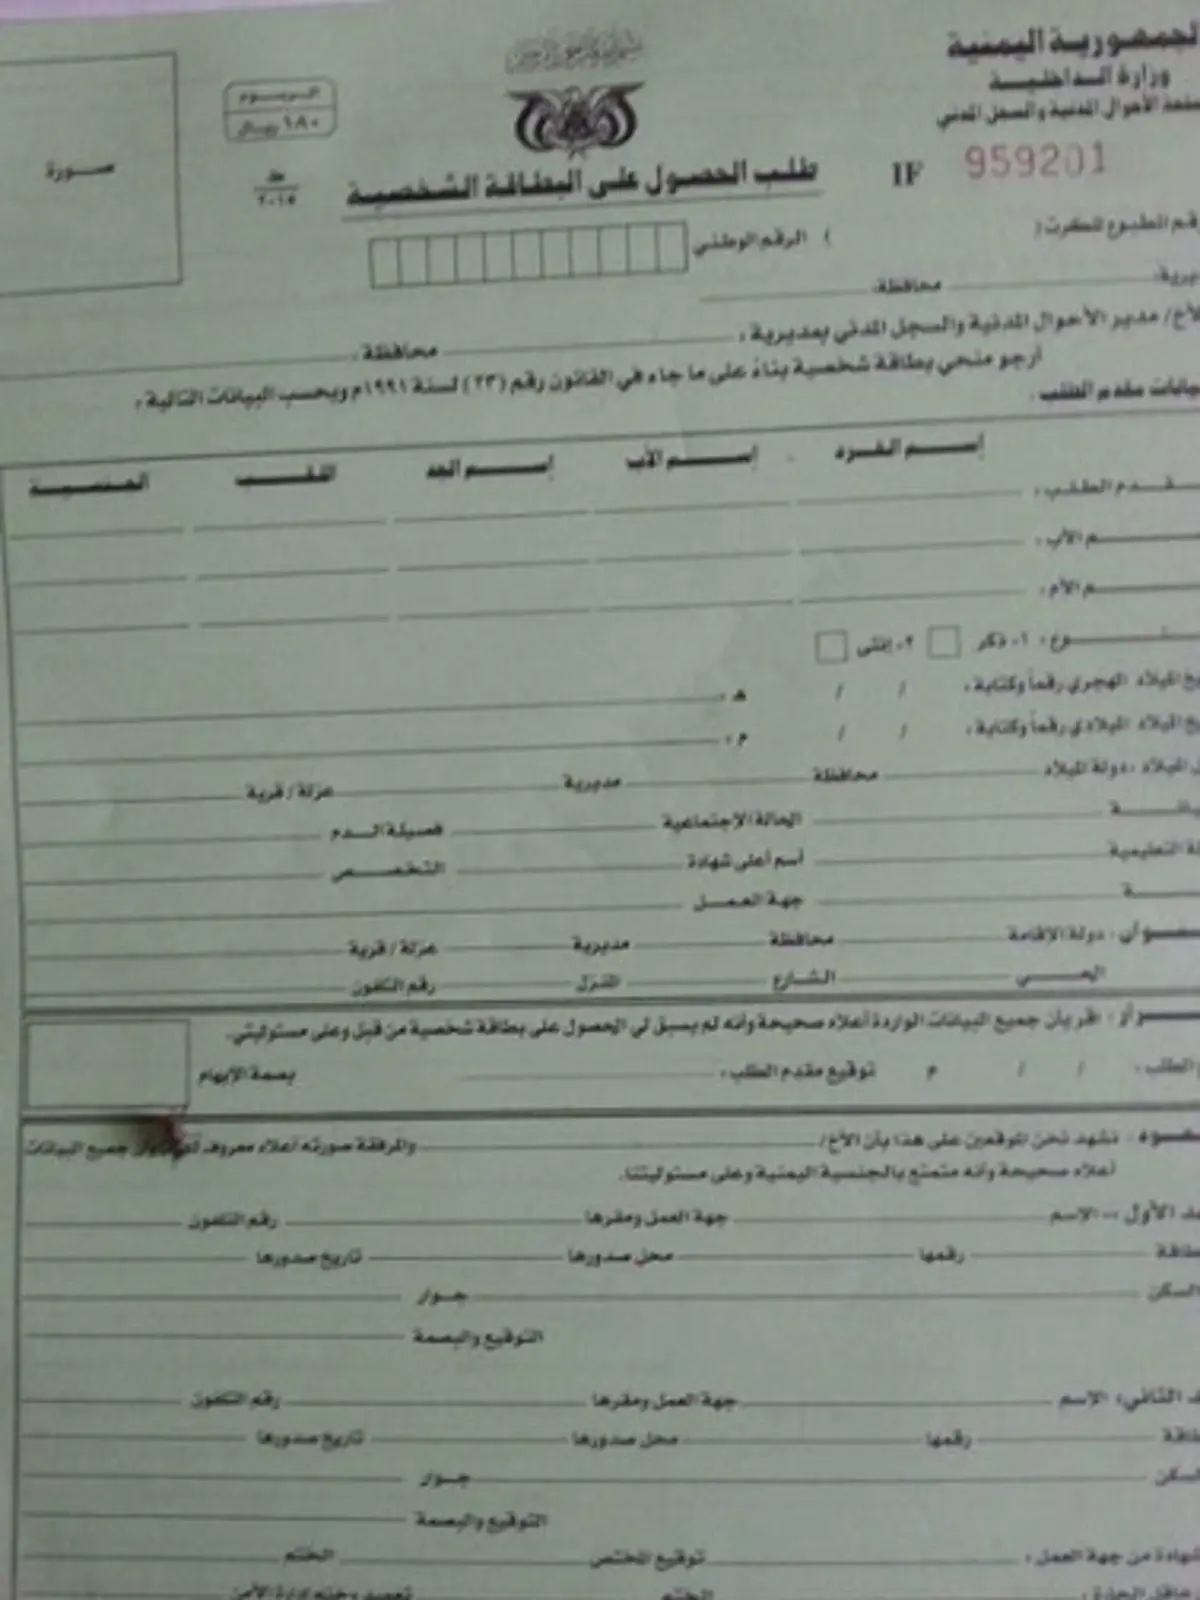 الجمهورية اليمنية
وزارة الداخلية
مصلحة الأحوال المدنية والسجل المدني
IF 959201
الرسوم
١٨٠ ريال
ط
٢٠١٥
صورة
طلب الحصول على البطاقة الشخصية
رقم المطبوع للكرت (                    ) الرقم الوطني
مديرية: محافظة:
الأخ/ مدير الأحوال المدنية والسجل المدني بمديرية : محافظة :
أرجو منحي بطاقة شخصية بناءً على ما جاء في القانون رقم (٢٣) لسنة ١٩٩١م وبحسب البيانات التالية :
بيانات مقدم الطلب :
إسم الفرد إسم الأب إسم الجد اللقب الجنسية
مقدم الطلب :
إسم الأب :
إسم الأم :
النوع : ١- ذكر ٢- إنثى
تاريخ الميلاد الهجري رقماً وكتابة : / / هـ :
تاريخ الميلاد الميلادي رقماً وكتابة : / / م :
محل الميلاد : دولة الميلاد محافظة مديرية عزلة / قرية
الحالة الإجتماعية فصيلة الدم
الحالة التعليمية أسم أعلى شهادة التخصص
جهة العمل
العنوان : دولة الإقامة محافظة مديرية عزلة / قرية
الحي الشارع المنزل رقم التلفون
إقرار : اقر بأن جميع البيانات الواردة أعلاه صحيحة وأنه لم يسبق لي الحصول على بطاقة شخصية من قبل وعلى مسئوليتي.
الطلب : / / م توقيع مقدم الطلب : بصمة الإبهام
الشهود : نشهد نحن الموقعين على هذا بأن الأخ/ والمرفقة صورته أعلاه معروف جميع البيانات
أعلاه صحيحة وأنه متمتع بالجنسية اليمنية وعلى مسئوليتنا.
الشاهد الأول -- الإسم جهة العمل ومقرها رقم التلفون
بطاقة رقمها محل صدورها تاريخ صدورها
السكن جوار
التوقيع والبصمة
الشاهد الثاني : الإسم جهة العمل ومقرها رقم التلفون
بطاقة رقمها محل صدورها تاريخ صدورها
السكن جوار
التوقيع والبصمة
شهادة من جهة العمل : توقيع المختص الختم
عاقل الحارة : الختم تعميد وختم إدارة الأمن